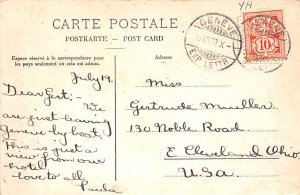 YH
CARTE POSTALE
POSTKARTE — POST CARD
Espace réservé à la correspondance pour
les pays seulement en cela est admis.
Adresse.
GENÈVE
EXP. LETTR.
10
July 19.
Dear Gert:- We
are just leaving
Geneve by boat.
This is just a
view from our
hotel
love to all
Miss
Gertrude Mueller
130 Noble Road
E. Cleveland Ohio
U.S.A.